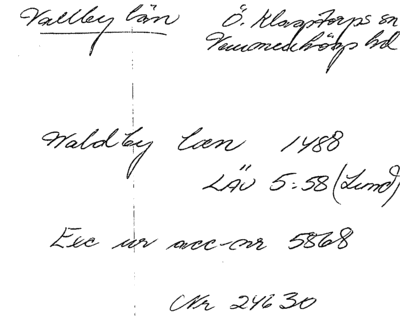 Vallby län Ö. Klagstorps sn
Vemmenhögs hd
Waldby læn 1488
LÄU 5:58 (Lund)
Exc ur acc-nr 5868
Nr 24630